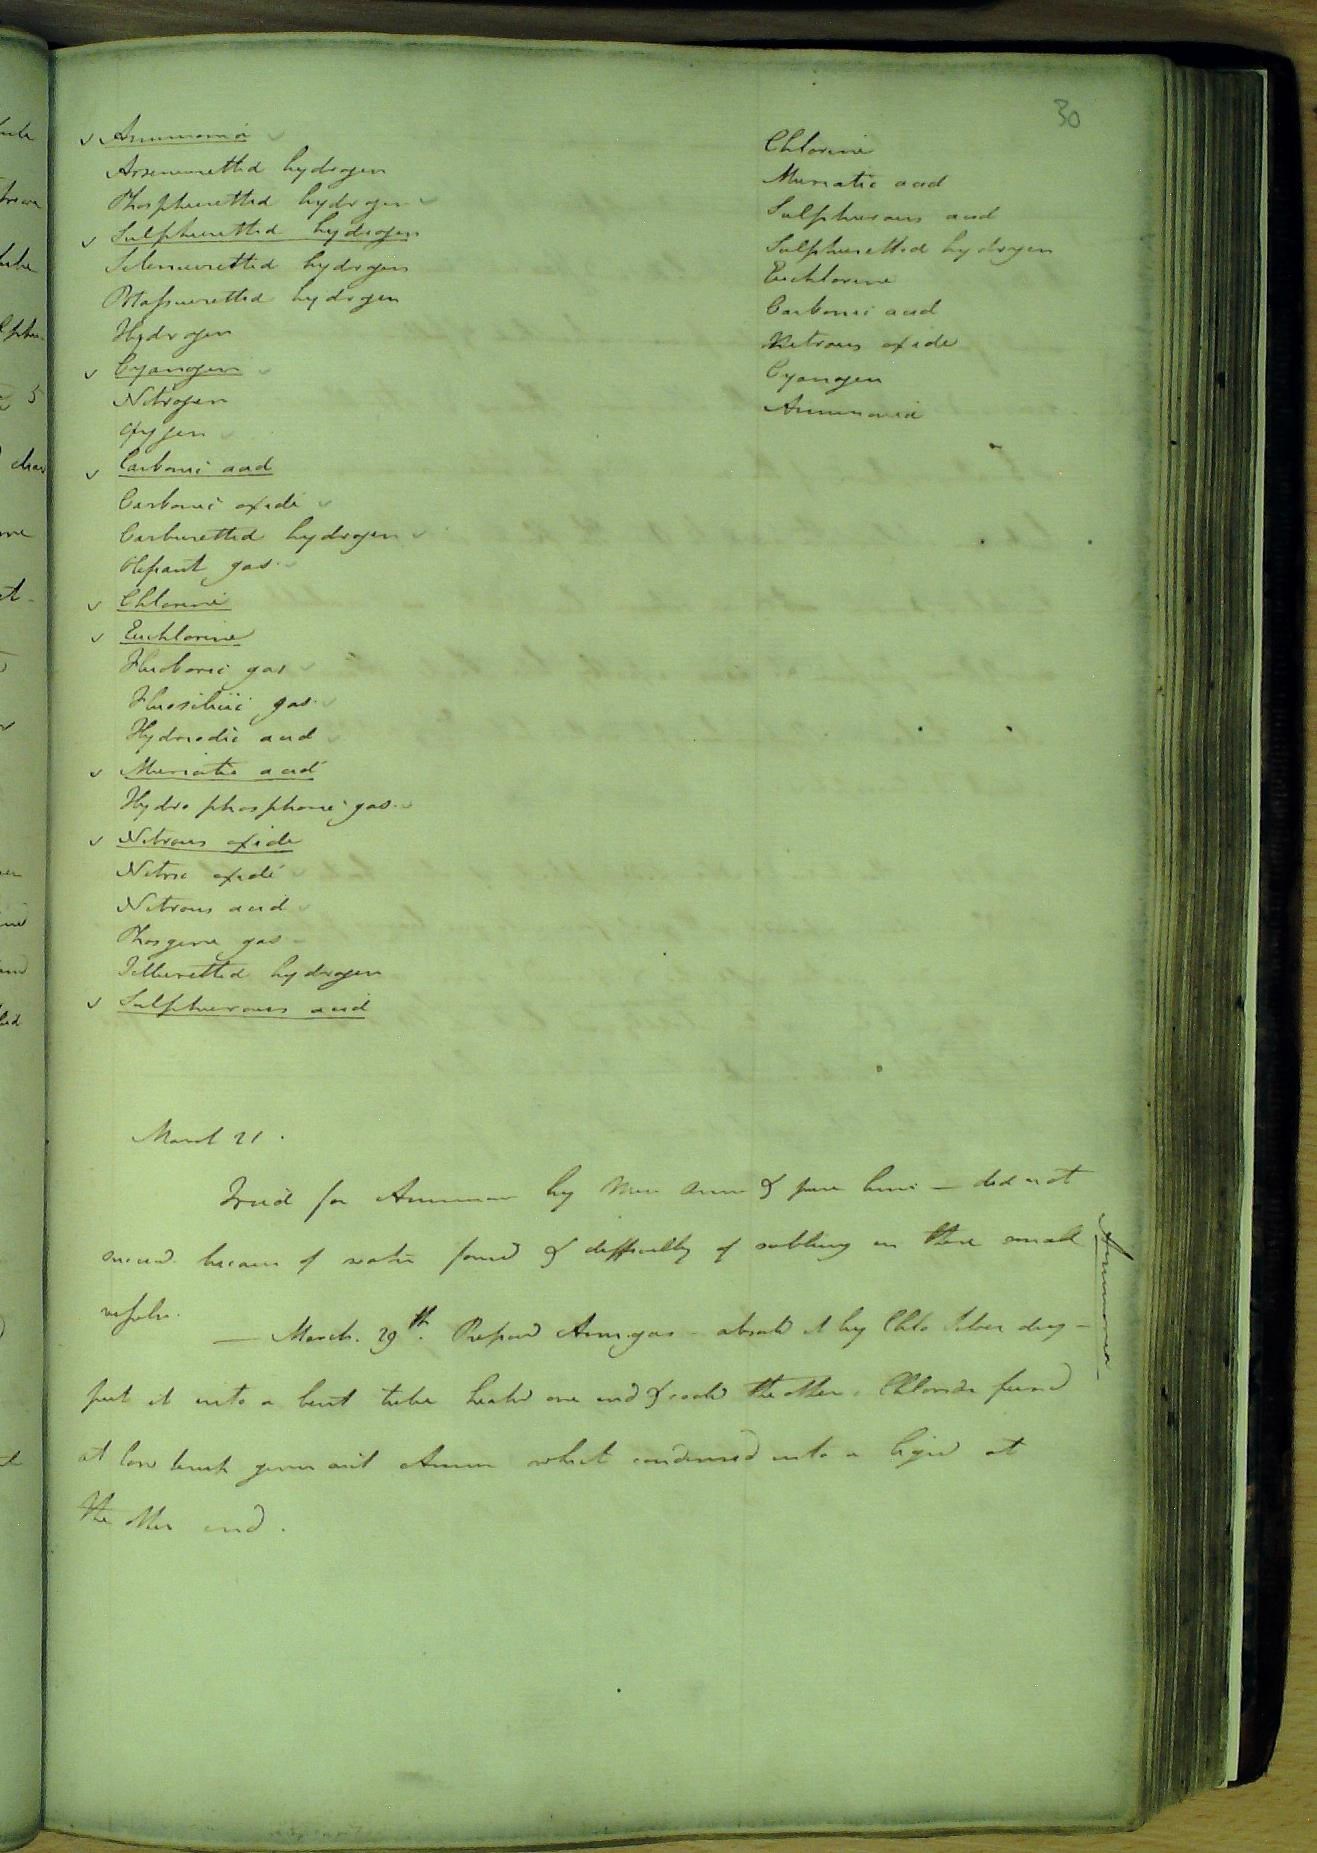 30
Ammonia
Arseniuretted hydrogen
Phosphuretted hydrogen
Sulphuretted hydrogen
Seleniuretted hydrogen
Potassiuretted hydrogen
Hydrogen
Cyanogen
Nitrogen
Oxygen
Carbonic acid
Carbonic oxide
Carburetted hydrogen
Olefiant gas
Chlorine
Euchlorine
Fluoboric gas
Fluosilicic gas
Hydriodic acid
Muriatic acid
Hydro phosphoric gas
Nitrous oxide
Nitric oxide
Nitrous acid
Phosgene gas
Telluretted hydrogen
Sulphurous acid
Chlorine
Muriatic acid
Sulphurous acid
Sulphuretted hydrogen
Euchlorine
Carbonic acid
Nitrous oxide
Cyanogen
Ammonia
March 21.
Tried for Ammon by Mur Amm & pure lime — did not
succeed because of water formed & difficulty of in these small
vessels.
— March. 29th. Prepared Amm gas - absorbd it by Chlo Silver dry -
put it into a bent tube heatd one end & coold the other. Chloride fused
at low temp gave out Ammn which condensed into a liquid at
the other end.
Ammonia